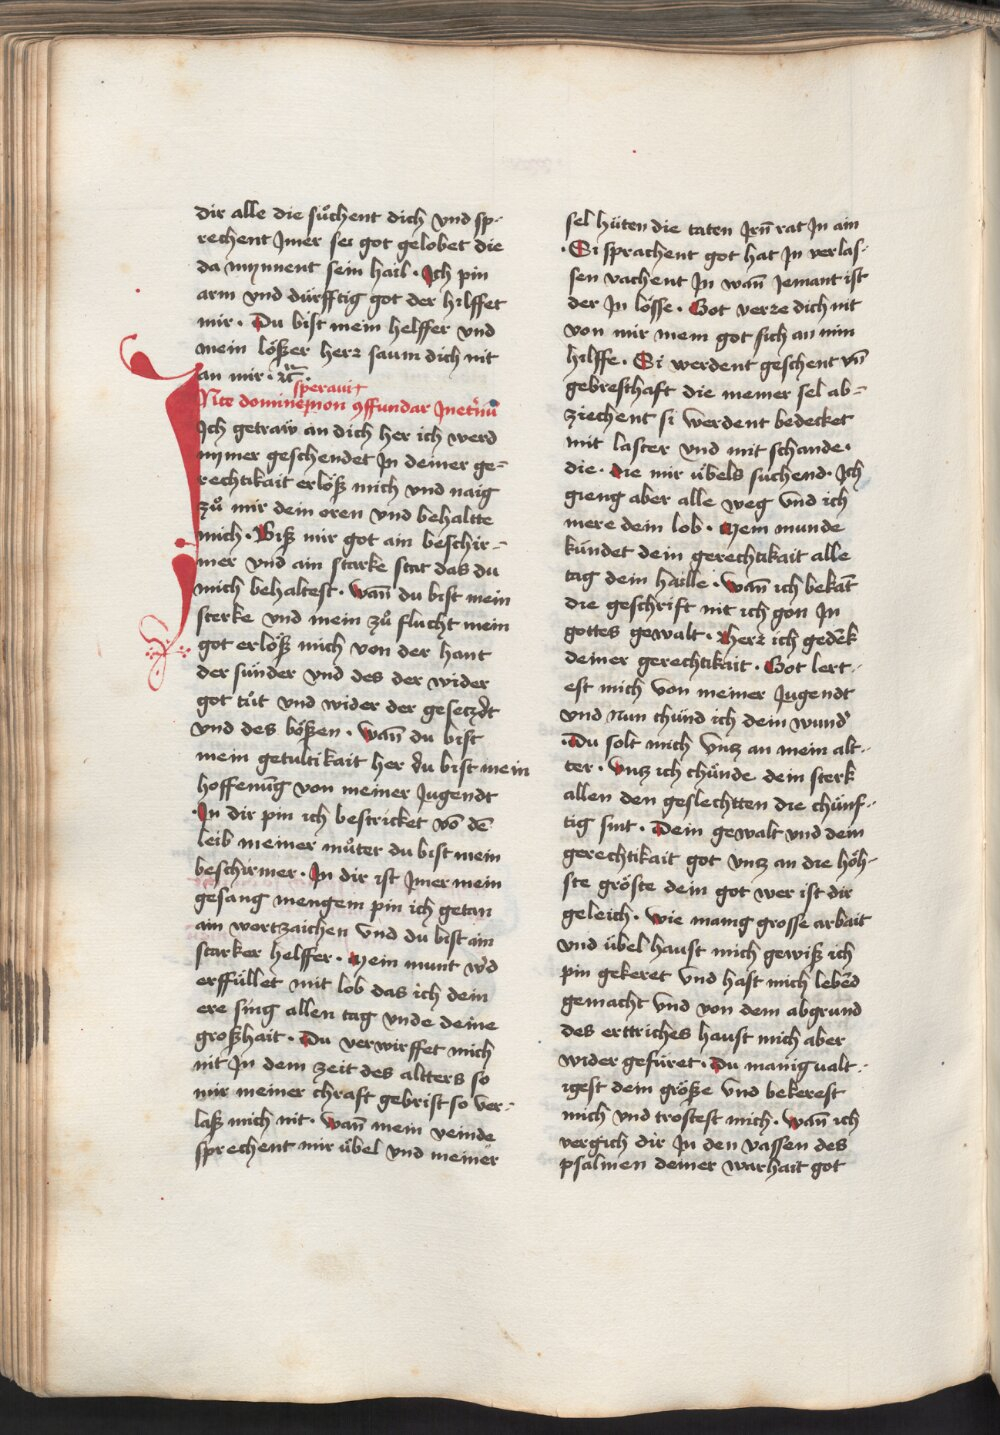 dir alle die sůchent dich vnd sp-
rechent Jmer sei got gelobet die
da mynnent sein hail · Ich pin
arm vnd dürfftig got der hilffet
mir · Du bist mein helffer vnd
mein lößer herr saum dich nit
an mir · ꝛc̄
sperauit
IN te domine non ꝯffundar Jnet̄nū
Ich getraw an dich her ich werd
nymer geschendet Jn deiner ge-
rechtikait erlöß mich vnd naig
zů mir dein oren vnd behaltte
mich · Biß mir got ain beschir-
mer vnd ain starke stat das du
mich behaltest · wañ du bist mein
sterke vnd mein zů flucht mein
got erlöß mich von der hant
der sünder vnd des der wider
got tůt vnd wider der gesetzdt
vnd des bößen · wañ du bist
mein getultikait her du bist mein
hoffenūg von meiner Jugendt
· In dir pin ich bestricket vō dē
leib meiner můter du bist mein
beschirmer · In dir ist Jmer mein
gesang mengem pin ich getan
ain wortzaichen vnd du bist ain
starker helffer · Mein munt w'd
erffüllet mit lob das ich dein
ere sing allen tag vnde deine
großhait · Du verwirffet mich
nit Jn dem zeit des altters so
mir meiner chraft gebrist so ver-
laß mich nit · wañ mein veinde
sprechent mir übel vnd meiner
sel hüten die taten Jrn̄ rat Jn ain
· Si sprachent got hat Jn verlas-
sen vachent Jn wañ Jemant ist
der Jn lösse · Got verre dich nit
von mir mein got sich an min
hilffe · Si werdent geschent vn̄
gebresthaft die meiner sel ab-
ziechent si werdent bedecket
mit laster vnd mit schande ·
die · die mir übels suchend · Ich
gieng aber alle weg vnd ich
mere dein lob · Mein munde
kündet dein gerechtikait alle
tag dein haille · wañ ich bekāt
die geschrift nit ich gon Jn
gottes gewalt · Herr ich gedēk
deiner gerechtikait · Got lert-
est mich von meiner Jugendt
vnd nun chünd ich dein wund'
· Du solt mich vnz an mein alt-
ter · vnz ich chünde dein sterk
allen den geslechtten die chünf-
tig sint · Dein gewalt vnd dein
gerechtikait got vnz an die höh-
ste gröste dein got wer ist dir
geleich · wie manig grosse arbait
vnd übel haust mich gewiß ich
pin gekeret vnd hast mich lebēd
gemacht vnd von dem abgrund
des erttriches haust mich aber
wider gefüret · Du manigualt-
igest dein größe vnd bekerest
mich vnd trostest mich · wañ ich
vergich dir Jn den vassen des
psalmen deiner warhait got